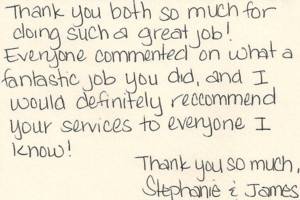 Thank you both so much for
doing such a great job!
Everyone commented on what a
fantastic job you did, and I
would definitely reccommend
your services to everyone I
know!
Thank you so much,
Stephanie & James